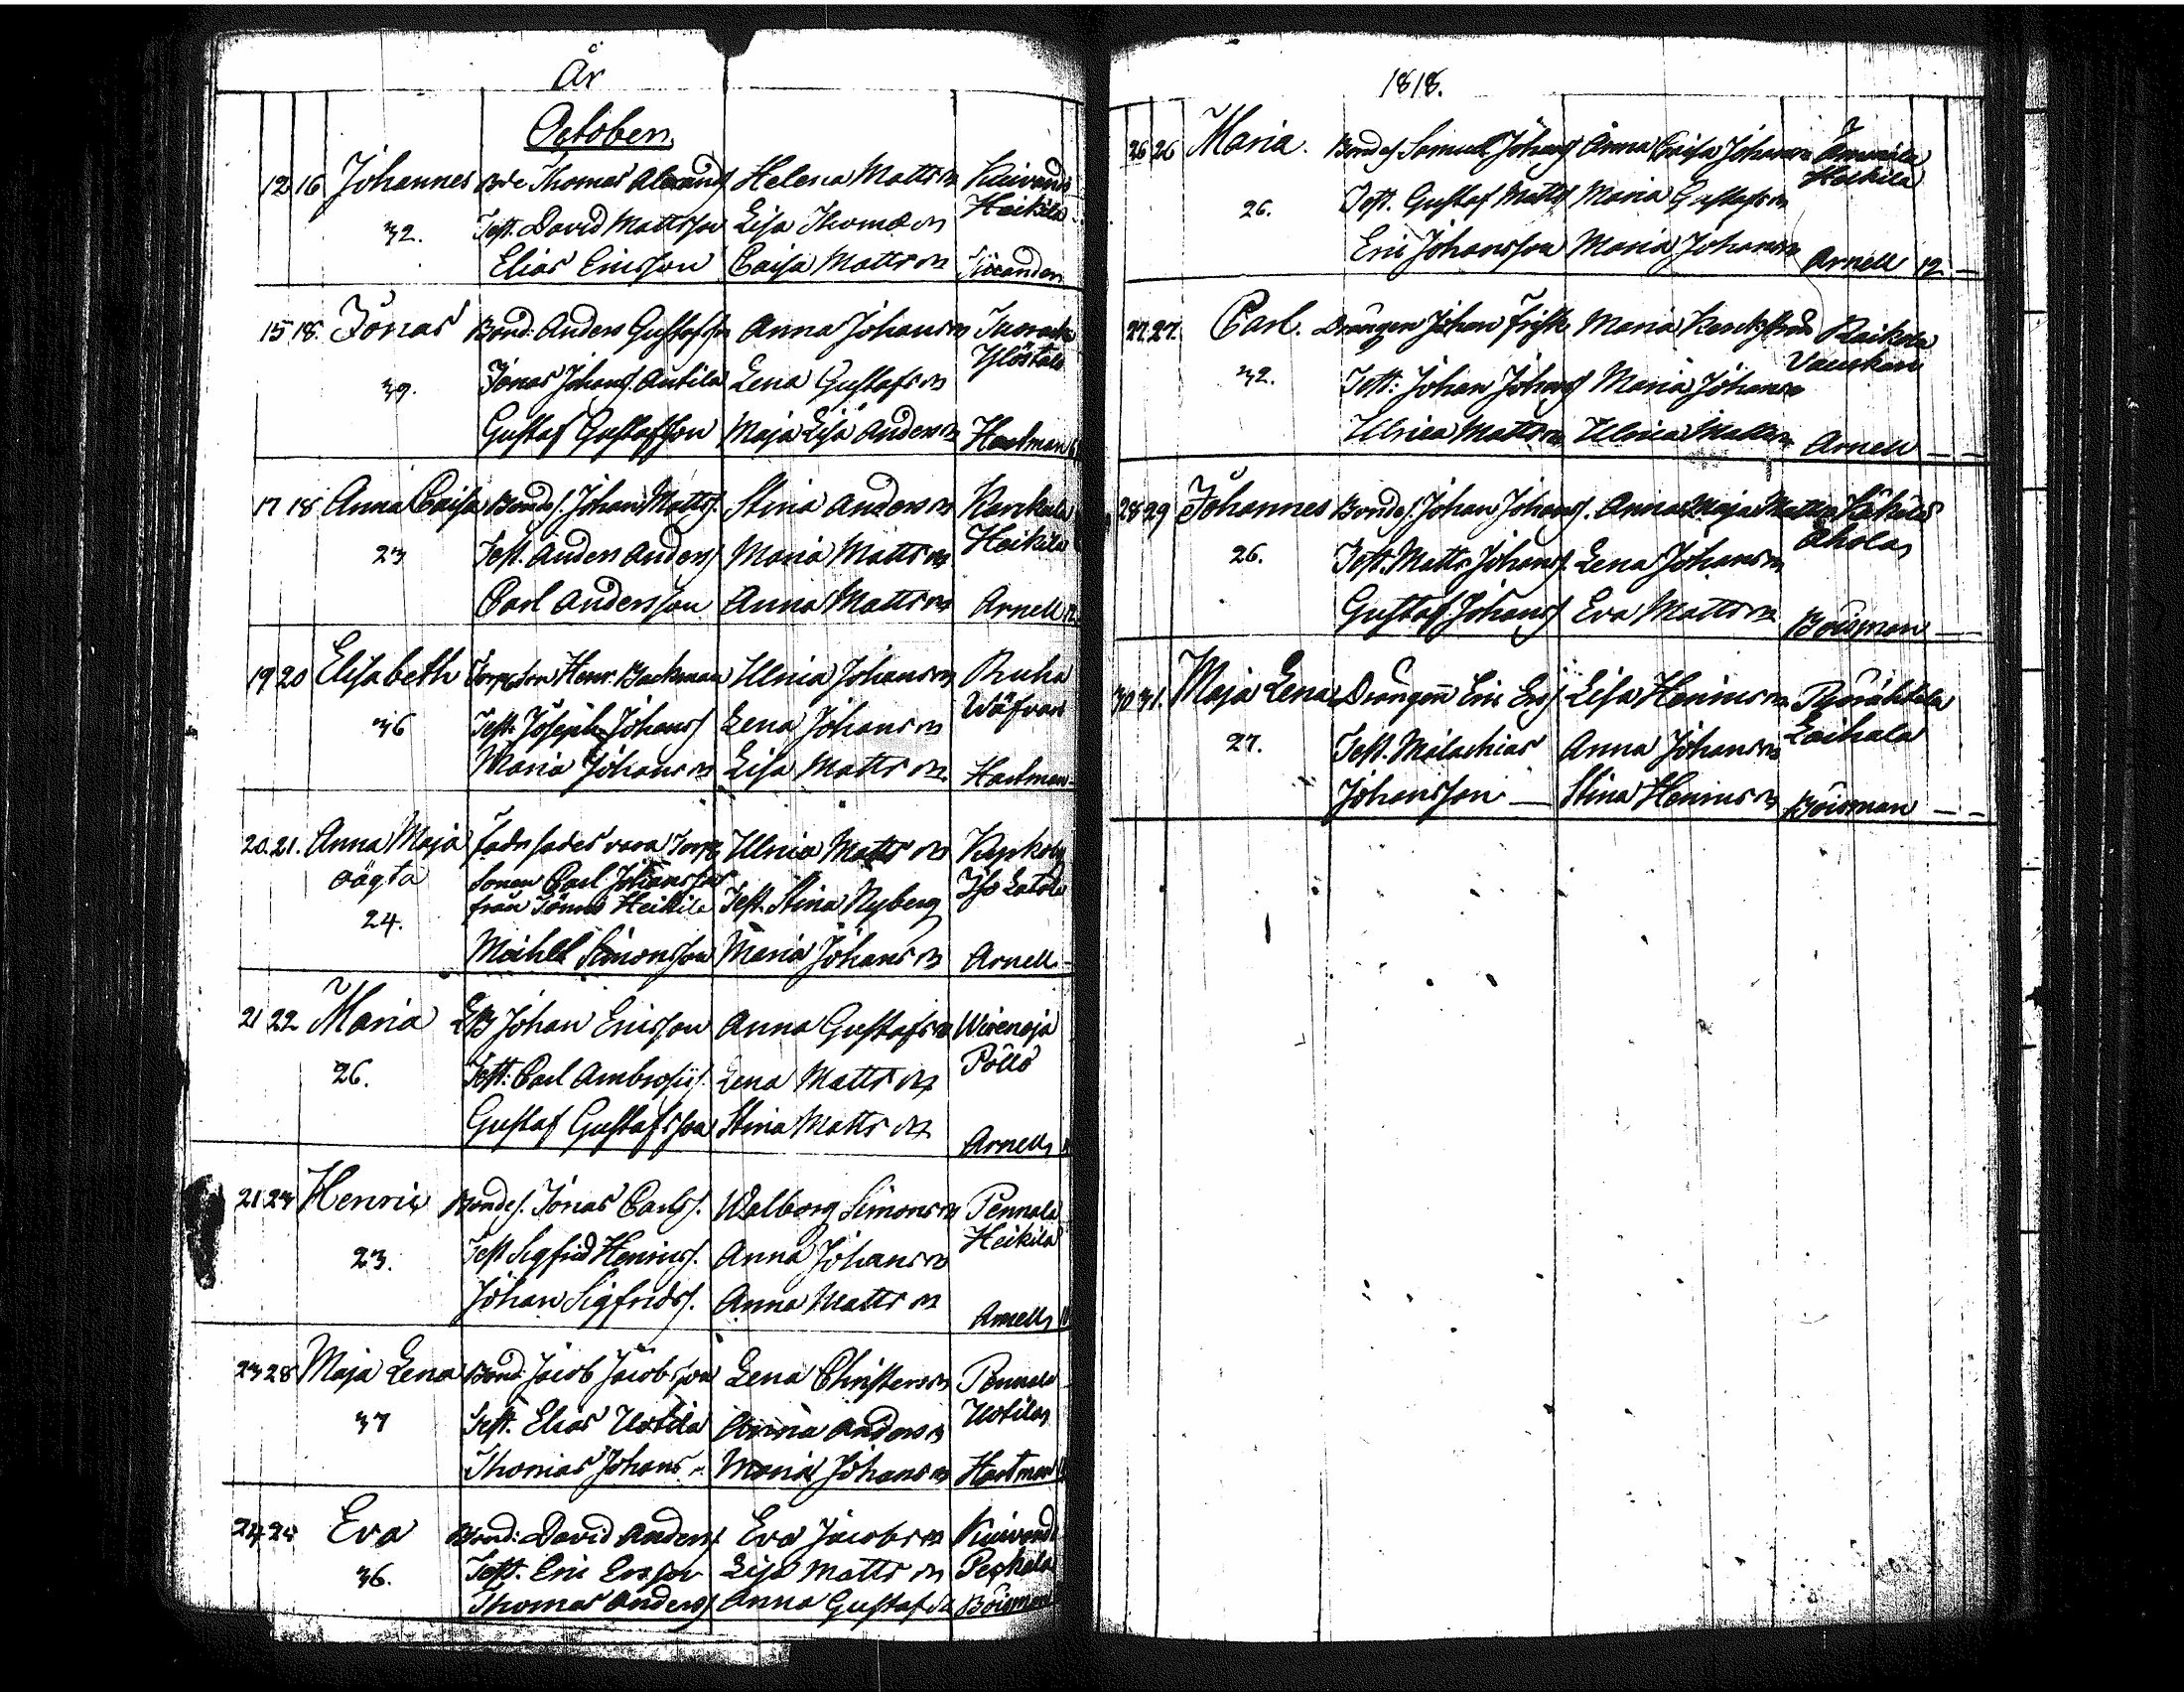 År
October
12 16 Johannes Bde Thomas Alexands Helena Mattsdr Kuivands
32. Test. David Mattsson Lisa Thomædr Heikilä
Elias Ericsson Caisa Mattsdr
15 18. Jonas Bond: Anders Gustafsson Anna Johansdr
39. Jonas Johans. Antila Lena Gustafsdr Ylöstalo
Gustaf Gustafsson Maja Lisa Andersdr Hartman
17 18 Anna Caisa Bondes. Johan Matts. Stina Andersdr Kankala
23 Test. Anders Anders Maria Mattsdr Heikilä
Carl Andersson Anna Mattsdr Arnell
19 20 Elisabeth Henr. Backman Ulrica Johansdr Ruha
36 Test. Joseph Johans Lena Johansdr Wäfvars
Maria Johansdr Lisa Mattsdr Hartman
20. 21. Anna Maja fadr sades vara Torp Ulrica Mattsdr
oägta Sonen Carl Johansson
24. från Heikilä Test. Stina Nyberg
Michel Simonsson Maria Johansdr Arnell
21 22 Maria Johan Ericsson Anna Gustafsdr Wirenoja
26. Test: Carl Ambrosiis. Lena Mattsdr Pöllö
Gustaf Gustafsson Stina Mattsdr
Arnell
21 23 Henric Bondes. Jonas Carls. Walborg Simonsdr Pennala
23. Test Sigfrid Henrics. Anna Johansdr Heikilä
Johan Sigfrids. Anna Mattsdr Arnell
23 28 Maja Lena Bond: Jacob Jacobsson Lena Christersdr Pennala
37 Test. Elias Uotila Anna Andersdr Uotila
Thomas Johans Maria Johansdr Hartman
24 24 Eva Bond: David Anders Eva Jacobsdr Kuivands
36. Test. Eric Ersson Lisa Mattsdr Peskala
Thomas Anders Anna Gustafsdr Böisman
1818.
26 26 Maria. Bondes Samuel Johans Anna Caisa Johansdr
Heikilä
26. Test. Gustaf Matts Maria Gustafsdr
Eric Johansson Maria Johansdr Arnell 12
27. 27. Carl. Drängen Johan Frisk Maria Raikola
32. Test: Johan Johans Maria Johansdr
Ulrica Mattsdr Ulrica Mattsdr Arnell
28 29 Johannes Bondes. Johan Johans. Anna Maja Mattsdr
Ahola
26. Test. Matts Johans Lena Johansdr
Gustaf Johans Eva Mattsdr Böisman
30 31. Maja Lena Drängen Eric Ers Lisa Henricsdr
27. Test. Malachias Anna Johansdr Laihala
Johansson Stina Henricsdr Böisman